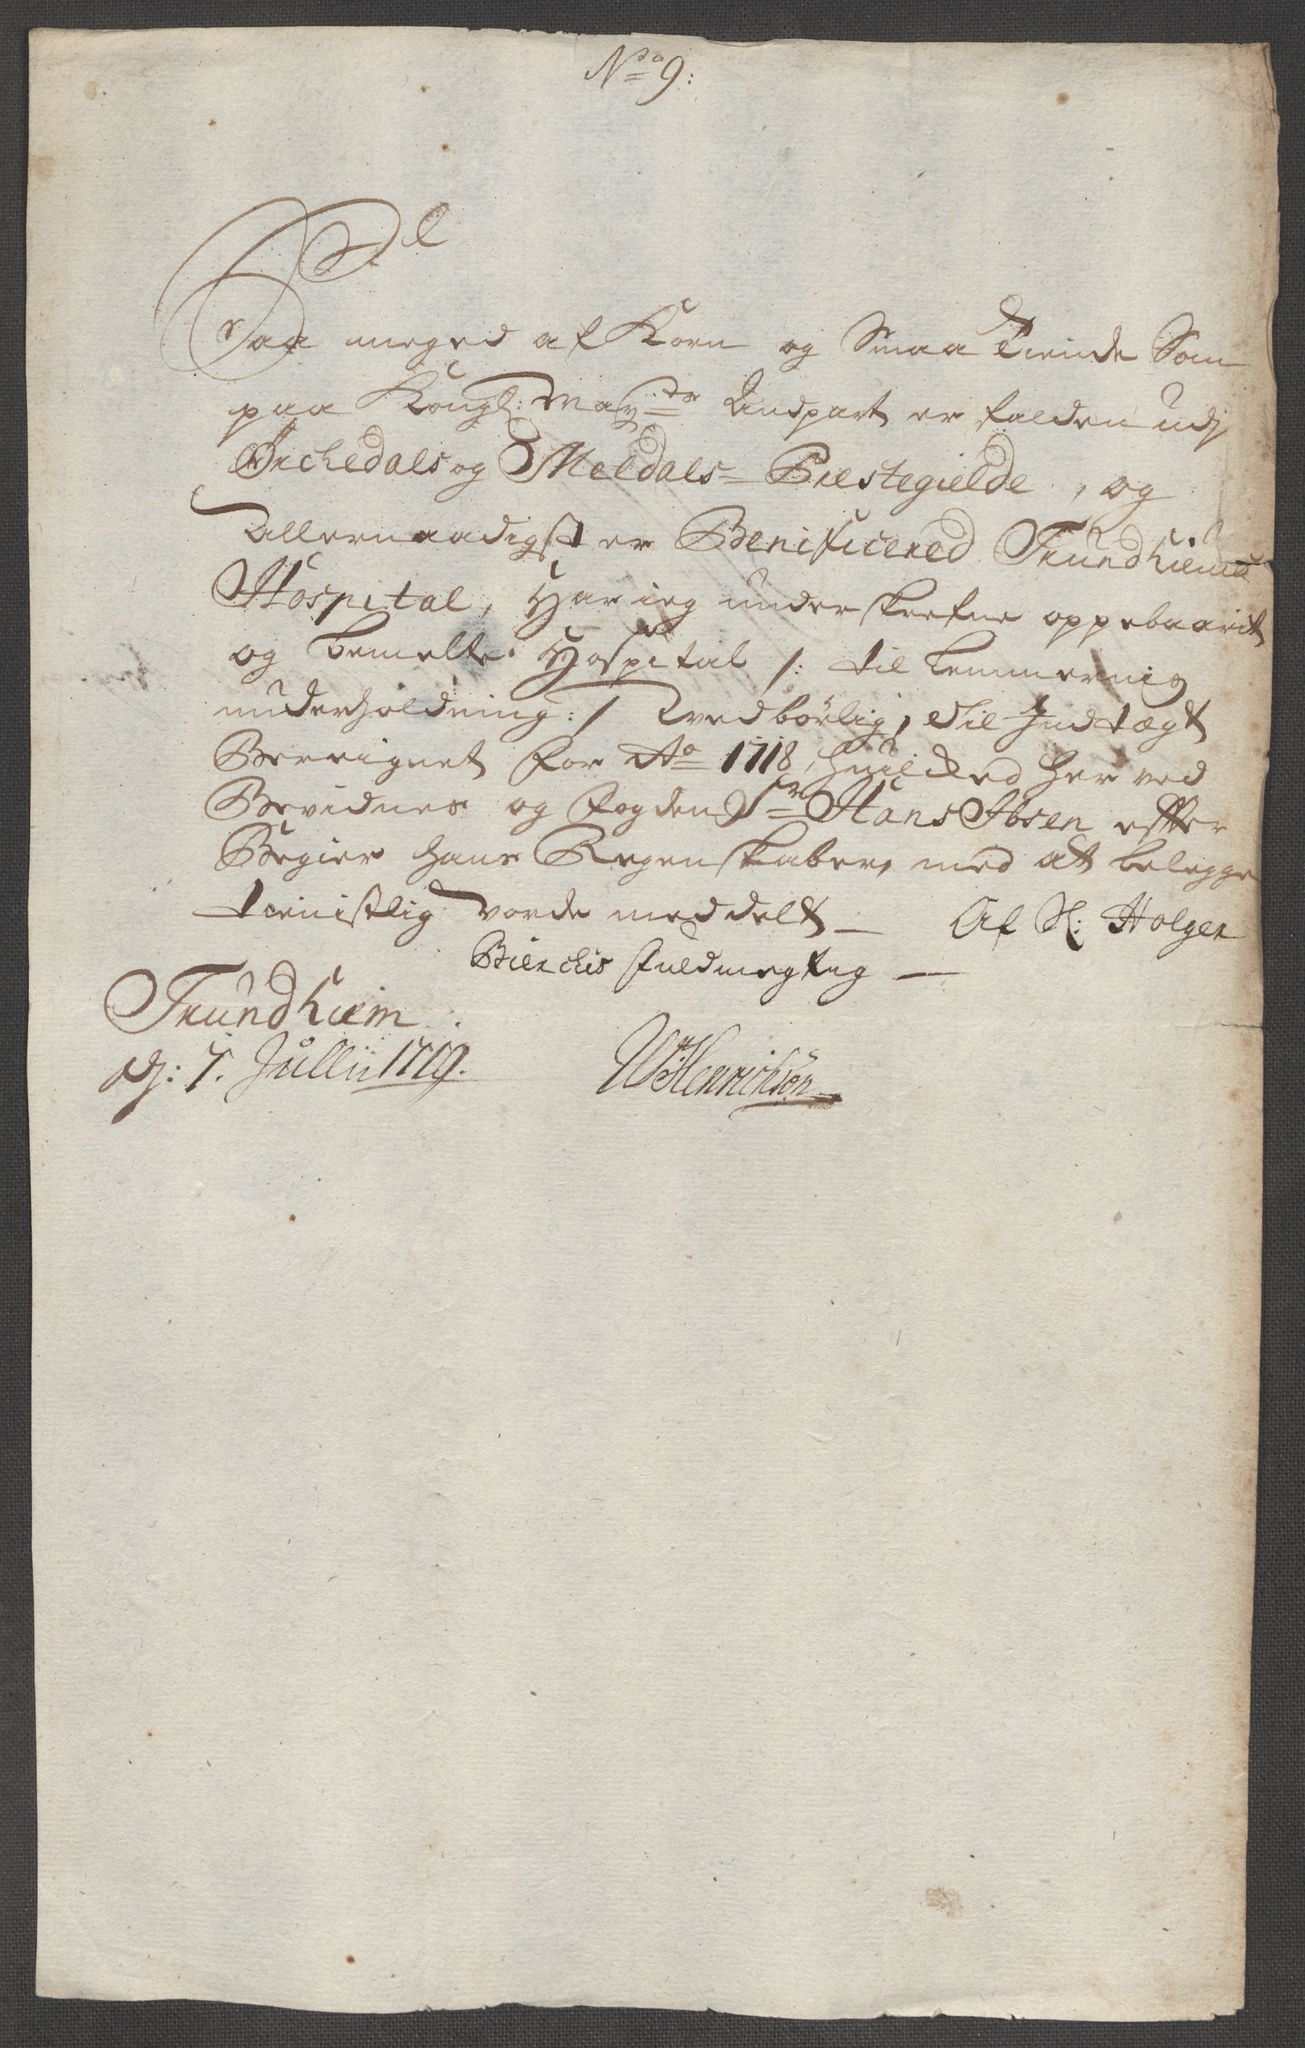 No 9:
Saa meget af Korn og Smaa Tiende Som
paa Kongl: May:ts Andpart er falden udj
Orchedals og Meldals= Præstegielde, og
Allernaadigst er Benificered Trundhiems
Hospital, Har ieg underskrefne oppebaaret
og bemelte Hospital /: til Lemmernis
underholdning :/ tilbørlig, til Indtægt
Bereignet for Ao 1718, huilcked her ved
Bevidnes og Fogden Sr Hans Ibsen effter
Begier hans Regenskaber, med at belegge
tienistlig vorde meddelt — Af Sl: Holger
Bierchis fuldmegtig —
Trundhiem
dj: 7. Jullii 1719.
WHenrichsøn